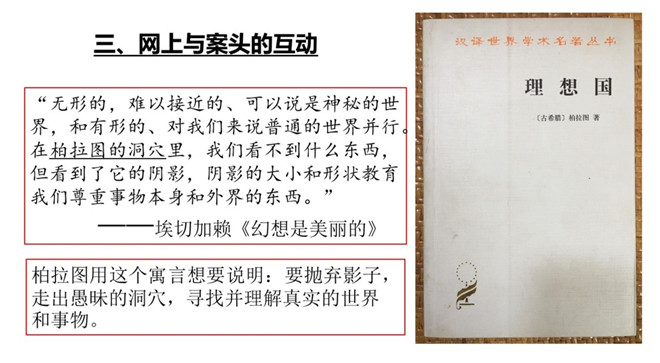 三、网上与案头的互动
“无形的，难以接近的、可以说是神秘的世
界，和有形的、对我们来说普通的世界并行。
在柏拉图的洞穴里，我们看不到什么东西，
但看到了它的阴影，阴影的大小和形状教育
我们尊重事物本身和外界的东西。”
——埃切加赖《幻想是美丽的》
柏拉图用这个寓言想要说明：要抛弃影子，
走出愚昧的洞穴，寻找并理解真实的世界
和事物。
汉译世界学术名著丛书
理想国
〔古希腊〕柏拉图 著